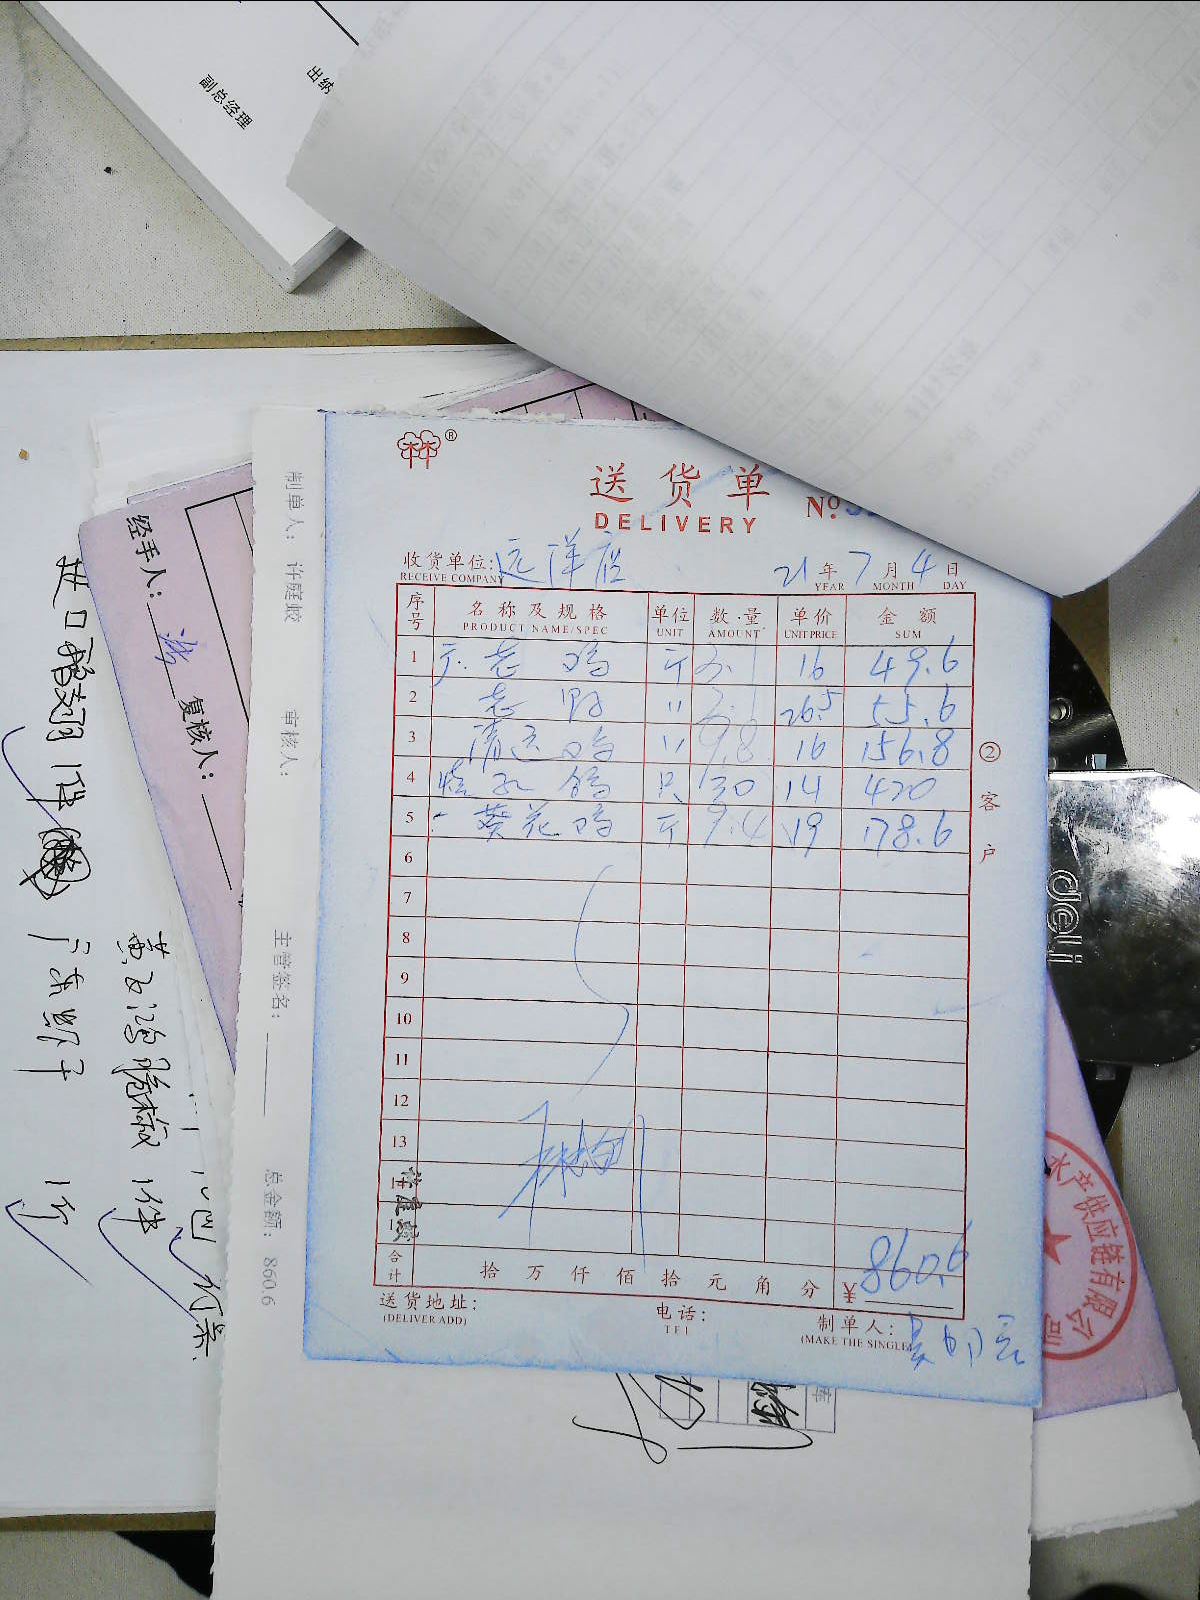 出纳
副总经理
送货单
DELIVERY
No.
收货单位: 远洋店 21 年 7 月 4 日
RECEIVE COMPANY YEAR MONTH DAY
序号 名称及规格 单位 数量 单价 金额
PRODUCT NAME/SPEC UNIT AMOUNT UNIT PRICE SUM
1 老鸡 斤 3.1 16 49.6
2 老 〃 2.1 26.5 55.6
3 清远鸡 〃 9.8 16 156.8
4 鸽 只 30 14 420
5 葵花鸡 斤 9.4 19 178.6
6
7
8
9
10
11
12
13
合计 拾 万 仟 佰 拾 元 角 分 ¥ 860.6
送货地址: 电话: 制单人:
(DELIVER ADD) TEL (MAKE THE SINGLE)
②客户
制单人: 许庭蛟
审核人:
主管签名:
总金额: 860.6
经手人:
复核人:
进口 翅 1件
1件
广东 1斤
deli
水产供应链有限公司